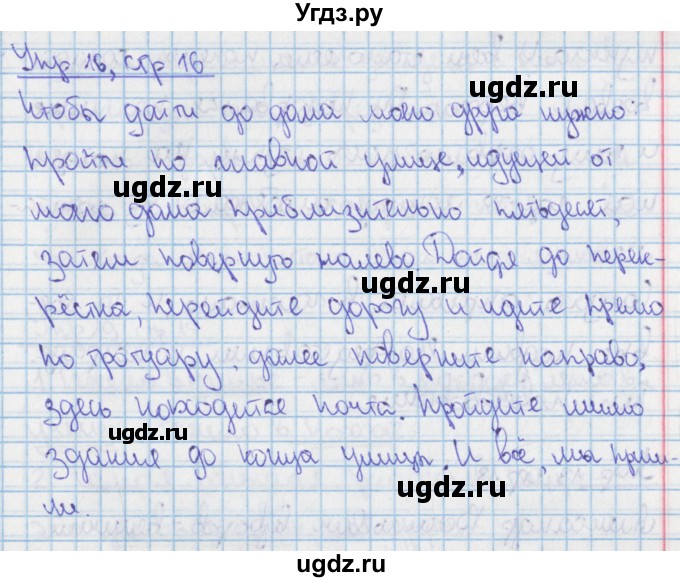 Угдз.ру
Упр 16, стр 16
ugdz.ru
Чтобы дайти до дома моего друга нужно:
пройти по главной улице, идущей от
ugdz.ru
моего дома приблизительно пятьдесят,
затем повернуть налево. Дойдя до перек-
ugdz.ru
рёстка, перейдите дорогу и идите прямо
по тротуару, далее поверните направо,
здесь находится почта. Пройдите мимо
ugdz.ru
здания до конца улицы. И всё, мы приш-
ugdz.ru
ли.
ugdz.ru